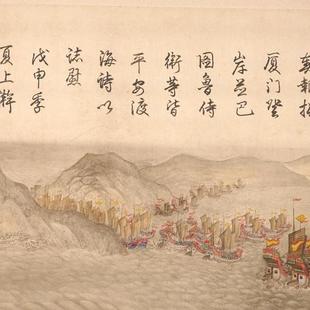 奏報抵
厦门登
岸並巴
圖魯侍
衛等皆
平安渡
海詩以
誌慰
戊申季
夏上澣